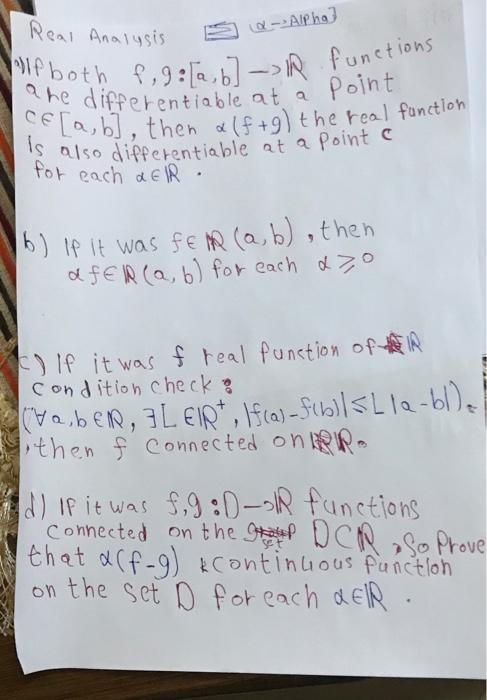 Real Analysis (α→Alpha)
a) If both f,g:[a,b]→ℝ functions
are differentiable at a Point
c∈[a,b], then α(f+g) the real function
is also differentiable at a Point c
for each α∈ℝ.
b) If it was f∈ℝ(a,b), then
αf∈ℝ(a,b) for each α⩾0
c) If it was f real function of ℝ
condition check:
(∀a,b∈ℝ, ∃L∈ℝ⁺, |f(a)-f(b)|≤L|a-b|).
,then f connected on ℝ.
d) If it was f,g:D→ℝ functions
connected on the set D⊂ℝ, So Prove
that α(f-g) continuous function
on the set D for each α∈ℝ.